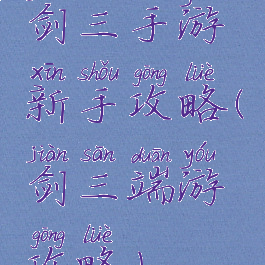 剑三手游
xīn shǒu gōng lüè
新手攻略(
jiàn sān duān yóu
剑三端游
gōng lüè
攻略)